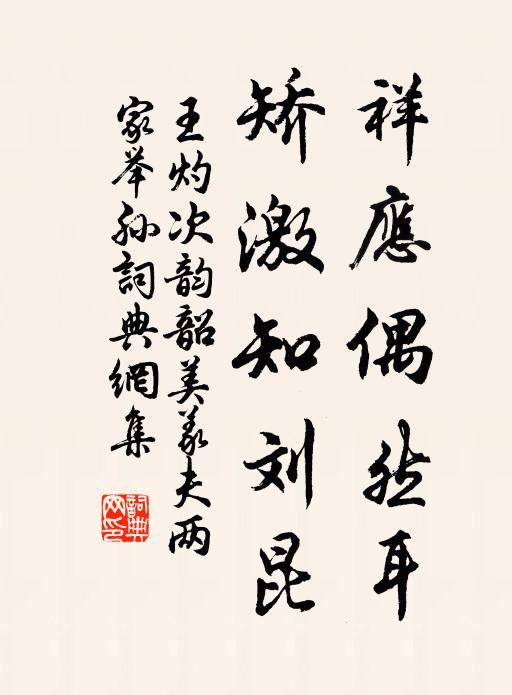 祥應偶然耳
矫激知刘昆
王灼次韵韶美义夫两
家举孙詞典網集
詞典网印